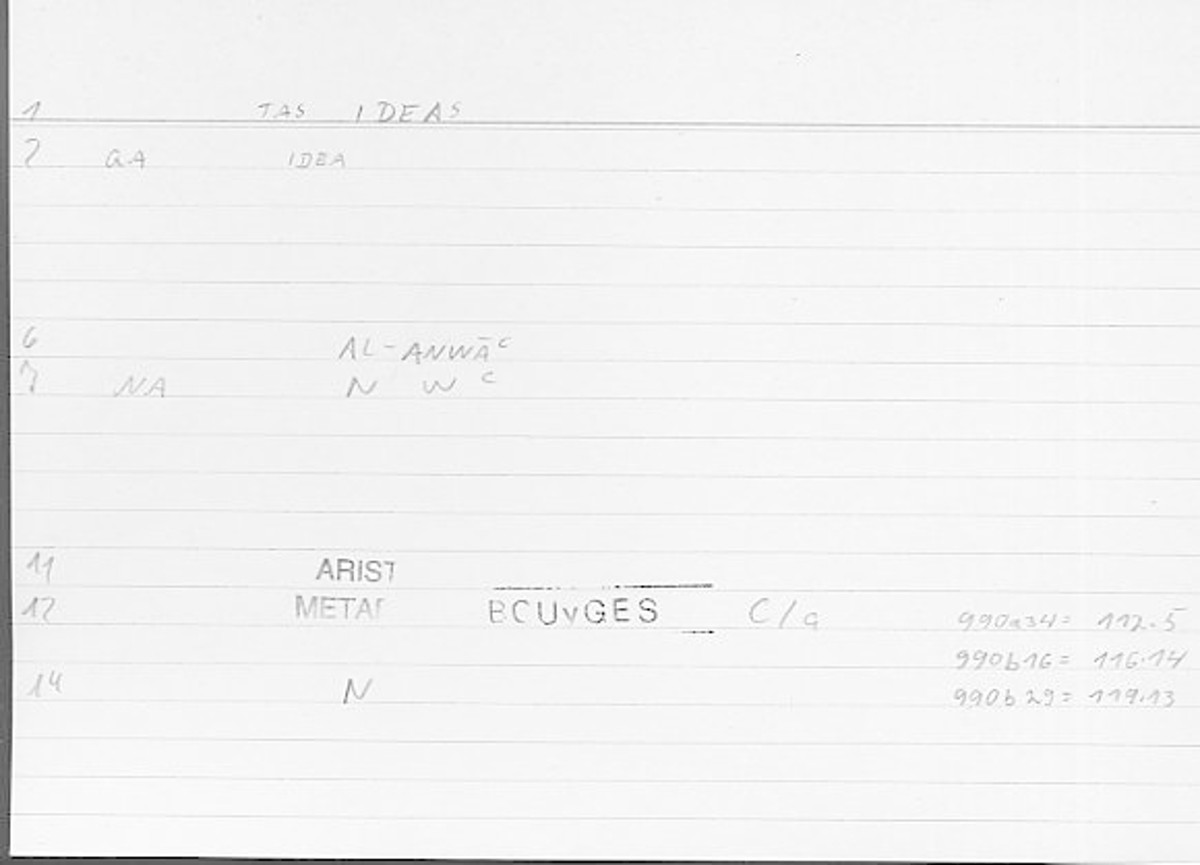 1 TAS IDEAS
2 GA IDEA
6 AL-ANWĀC
7 NA N W C
11 ARIST
12 METAF BCUvGES C/a 990a34= 112.5
990b16= 116.14
14 N 990b29= 119.13